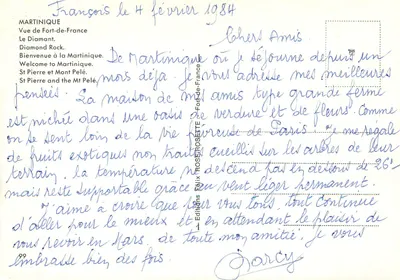 François le 4 février 1984
MARTINIQUE
Vue de Fort-de-France
Le Diamant.
Diamond Rock.
Bienvenue à la Martinique.
Welcome to Martinique.
St Pierre et Mont Pelé.
St Pierre and the Mt Pelé.
Chers Amis.
De Martinique où je séjourne depuis un
mois déjà je vous adresse mes meilleures
pensées. La maison de mes amis type grande ferme
est nichée dans une oasis de verdure et de fleurs. Comme
on se sent loin de la vie de Paris. Je me régale
de fruits exotiques non traités cueillis sur les arbres de leur
terrain. la température ne descend pas en dessous de 26°
mais reste supportable grâce au vent léger permanent.
J'aime à croire que pour vous tous, tout continue
d'aller pour le mieux et en attendant le plaisir de
vous revoir en Mars. de toute mon amitié. Je vous
embrasse bien des fois.
Darcy
Editions Félix Fort-de-France